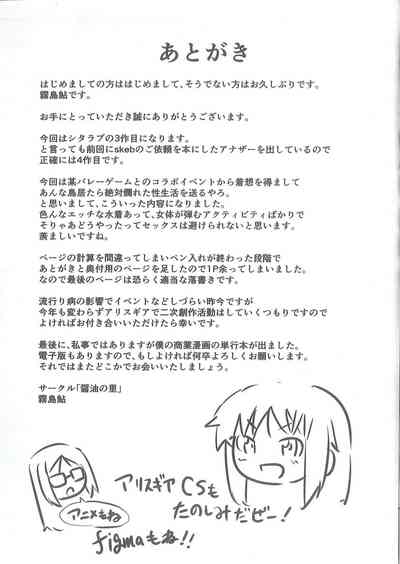 あとがき
はじめましての方ははじめまして、そうでない方はお久しぶりです。
霧島鮎です。
お手にとっていただき誠にありがとうございます。
今回はシタラブの3作目になります。
と言っても前回にskebのご依頼を本にしたアナザーを出しているので
正確には4作目です。
今回は某バレーゲームとのコラボイベントから着想を得まして
あんな島居たら絶対爛れた性生活を送るやろ。
と思いまして、こういった内容になりました。
色んなエッチな水着あって、女体が弾むアクティビティばかりで
そりゃあどうやったってセックスは避けられないと思います。
羨ましいですね。
ページの計算を間違ってしまいペン入れが終わった段階で
あとがきと奥付用のページを足したので1P余ってしまいました。
なので最後のページは恐らく適当な落書きです。
流行り病の影響でイベントなどしづらい昨今ですが
今年も変わらずアリスギアで二次創作活動はしていくつもりですので
よければお付き合いいただけたら幸いです。
最後に、私事ではありますが僕の商業漫画の単行本が出ました。
電子版もありますので、もしよければ何卒よろしくお願いします。
それではまたどこかでお会いいたしましょう。
サークル「醤油の里」
霧島鮎
アリスギアCSも
たのしみだぜー!
アニメもね
figmaもね!!